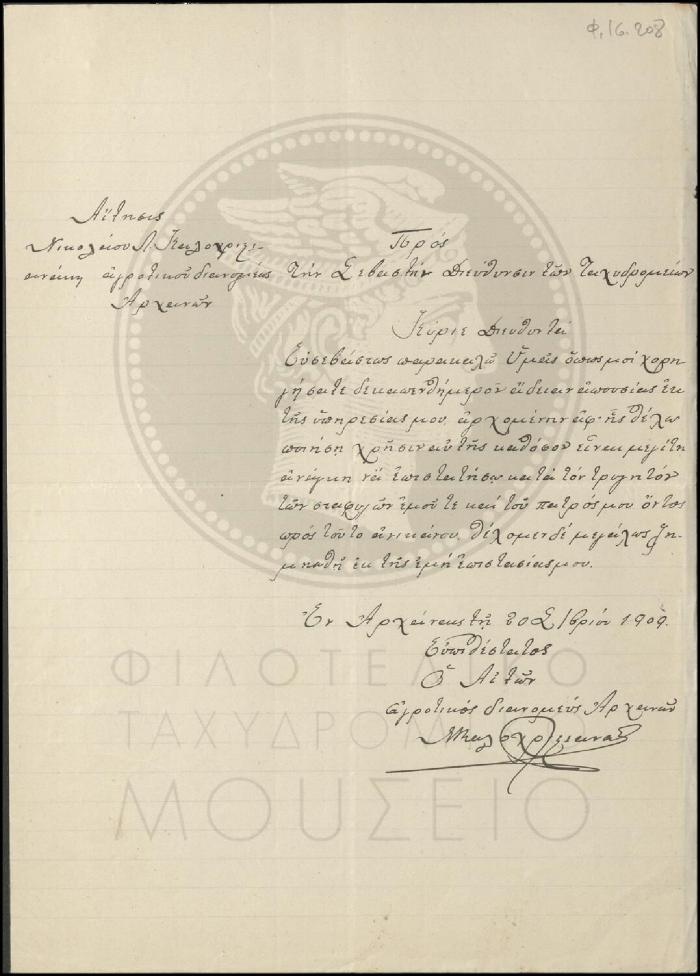 Φ. 16. 208
Αἴτησις
Νικολάου Λ. Καλοχριστι-
ανάκη ἀγροτικοῦ διανομέως
Ἀρχανῶν
Πρός
Τὴν Σεβαστὴν Διεύθυνσιν τῶν Ταχυδρομείων
Κύριε Διευθυντά
Εὐσεβάστως παρακαλῶ Ὑμᾶς ὅπως μοὶ χορη
γήσατε δεκαπενθήμερον ἄδειαν ἀπουσίας ἐκ
τῆς ὑπηρεσίας μου, ἀρχομένην ἀφ' ἧς θέλω
ποιήση χρῆσιν αὐτῆς καθόσον εἶναι μεγίτη
ἀνάγκη νὰ ἐπιστατήσω κατὰ τὸν τρυγητόν
τῶν σταφυλῶν ἐμοῦ τε καὶ τοῦ πατρός μου ὄντος
πρός τοῦτο ἀνικάνου, θέλομεν δὲ μεγάλως ζη-
μιωθῆ ἐκ τῆς ἐμῆ ἐπιστασίας μου.
Ἐν Ἀρχάναις τῇ 20 Σ/βρίου 1909.
Εὐπιθέστατος
Ὁ Αἰτῶν
ἀγροτικός διανομεύς Ἀρχανῶν
ΦΙΛΟΤΕΛΙΚΟ
ΤΑΧΥΔΡΟΜΙΚΟ
ΜΟΥΣΕΙΟ